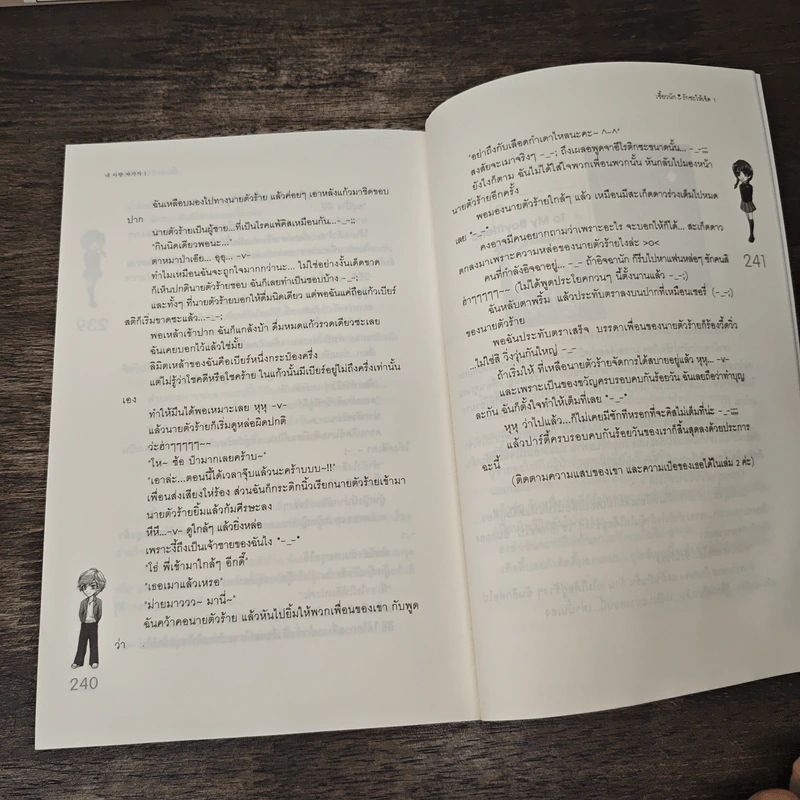 내 사랑 싸가지 1
ฉันเหลือบมองไปทางนายตัวร้าย แล้วค่อยๆ เอาหลังแก้วมาชิดขอบ
ปาก
นายตัวร้ายเป็นผู้ชาย...ที่เป็นโรคแพ้คิสเหมือนกัน...-_-;;
"กินนิดเดียวพอนะ..."
ตาหมาป่าเอ๊ย... จุจุ... -v-
ทำไมเหมือนฉันจะถูกใจมากกว่านะ... ไม่ใช่อย่างงั้นเด็ดขาด
ก็เห็นปกตินายตัวร้าย ชอบ ฉันก็เลยทำเป็นชอบบ้าง -_-;
และทั้งๆ ที่นายตัวร้ายบอกให้ดื่มนิดเดียว แต่พอฉันแค่ถือแก้วเบียร์
สติก็เริ่มขาดซะแล้ว...-_-;
พอเหล้าเข้าปาก ฉันก็แกล้งบ้า ดื่มหมดแก้วรวดเดียวซะเลย
ฉันเคยบอกไว้แล้วใช่มั้ย
ลิมิตเหล้าของฉันคือเบียร์หนึ่งกระป๋องครึ่ง
แต่ไม่รู้ว่าโชคดีหรือโชคร้าย ในแก้วนั้นมีเบียร์อยู่ไม่ถึงครึ่งเท่านั้น
เอง
ทำให้มึนได้พอเหมาะเลย หุหุ -v-
แล้วนายตัวร้ายก็เริ่มดูหล่อผิดปกติ
ว่ะฮ่าๆๆๆๆๆ~~
"โห~ ซ้อ ป๋ามากเลยคร้าบ~"
"เอาล่ะ...ตอนนี้ได้เวลาจุ๊บแล้วนะคร้าบบบ~!!"
เพื่อนส่งเสียงให้ร้อง ส่วนฉันก็กระดิกนิ้วเรียกนายตัวร้ายเข้ามา
นายตัวร้ายยิ้มแล้วก้มศีรษะลง
หึหึ...-v- ดูใกล้ๆ แล้วยิ่งหล่อ
เพราะงี้ถึงเป็นเจ้าชายของฉันไง *-_-*
"ไฮ่ พี่เข้ามาใกล้ๆ อีกดิ๊"
"เธอเมาแล้วเหรอ"
"ม่ายมาววว~ มานี่~"
ฉันคว้าคอนายตัวร้าย แล้วหันไปยิ้มให้พวกเพื่อนของเขา กับพูด
ว่า
240
เชี้ยวนัก รักซะให้เข็ด 1
"อย่าถึงกับเลือดกำเดาไหลนะคะ~ ^-^"
สงสัยจะเมาจริงๆ -_-; ถึงเผลอพูดจาอีโรติกซะขนาดนั้น... -_-;;;
ยังไงก็ตาม ฉันไม่ได้ใส่ใจพวกเพื่อนพวกนั้น หันกลับไปมองหน้า
นายตัวร้ายอีกครั้ง
พอมองนายตัวร้ายใกล้ๆ แล้ว เหมือนมีสะเก็ดดาวร่วงเต็มไปหมด
เลย *-_-*
คงอาจมีคนอยากถามว่าเพราะอะไร จะบอกให้ก็ได้... สะเก็ดดาว
ตกลงมาเพราะความหล่อของนายตัวร้ายไงล่ะ >o<
คนที่กำลังอิจฉาอยู่... -_- ถ้าอิจฉานัก ก็รีบไปหาแฟนหล่อๆ ซักคนสิ
ฮ่าๆๆๆๆ~~ (ไม่ได้พูดประโยคกวนๆ นี้ตั้งนานแล้ว -_-;)
ฉันหลับตาพริ้ม แล้วประทับตราลงบนปากที่เหมือนเชอรี่ (-_-;)
ของนายตัวร้าย
พอฉันประทับตราเสร็จ บรรดาเพื่อนของนายตัวร้ายก็ร้องวี้ดวิ่ว
...ไม่ใช่สิ วิ่งวุ่นกันใหญ่ -_-
ถ้าเริ่มให้ ที่เหลือนายตัวร้ายจัดการได้สบายอยู่แล้ว หุหุ... -v-
และเพราะเป็นของขวัญครบรอบคบกันร้อยวัน ฉันเลยถือว่าทำบุญ
ละกัน ฉันก็ตั้งใจทำให้เต็มที่เลย *-_-*
หุหุ ว่าไปแล้ว...ก็ไม่เคยมีซักทีหรอกที่จะคิสไม่เต็มที่น่ะ -_-;;;;
แล้วปาร์ตี้ครบรอบคบกันร้อยวันของเราก็สิ้นสุดลงด้วยประการ
ฉะนี้
(ติดตามความแสบของเขา และความเปิ่นของเธอได้ในเล่ม 2 ค่ะ)
241